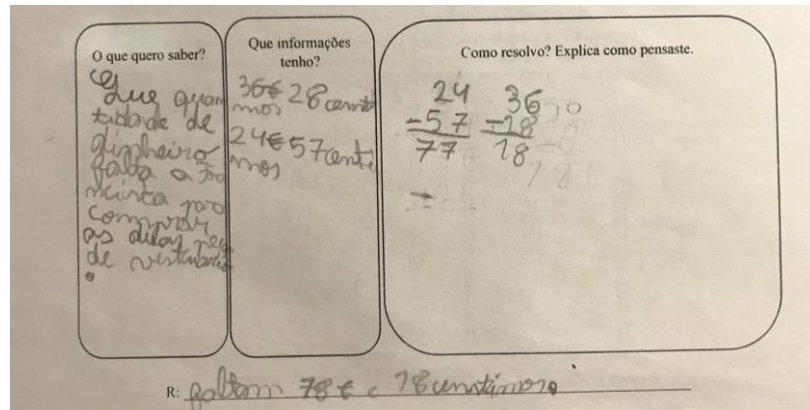 O que quero saber?
Que quan
tidade de
dinheiro
falta a
para
comprar
as duas
de
Que informações
tenho?
36€ 28 centi
mos
24€ 57 centi
mos
Como resolvo? Explica como pensaste.
24
-57
77
36
-18
18
R: faltam 78 € e 18 centimos